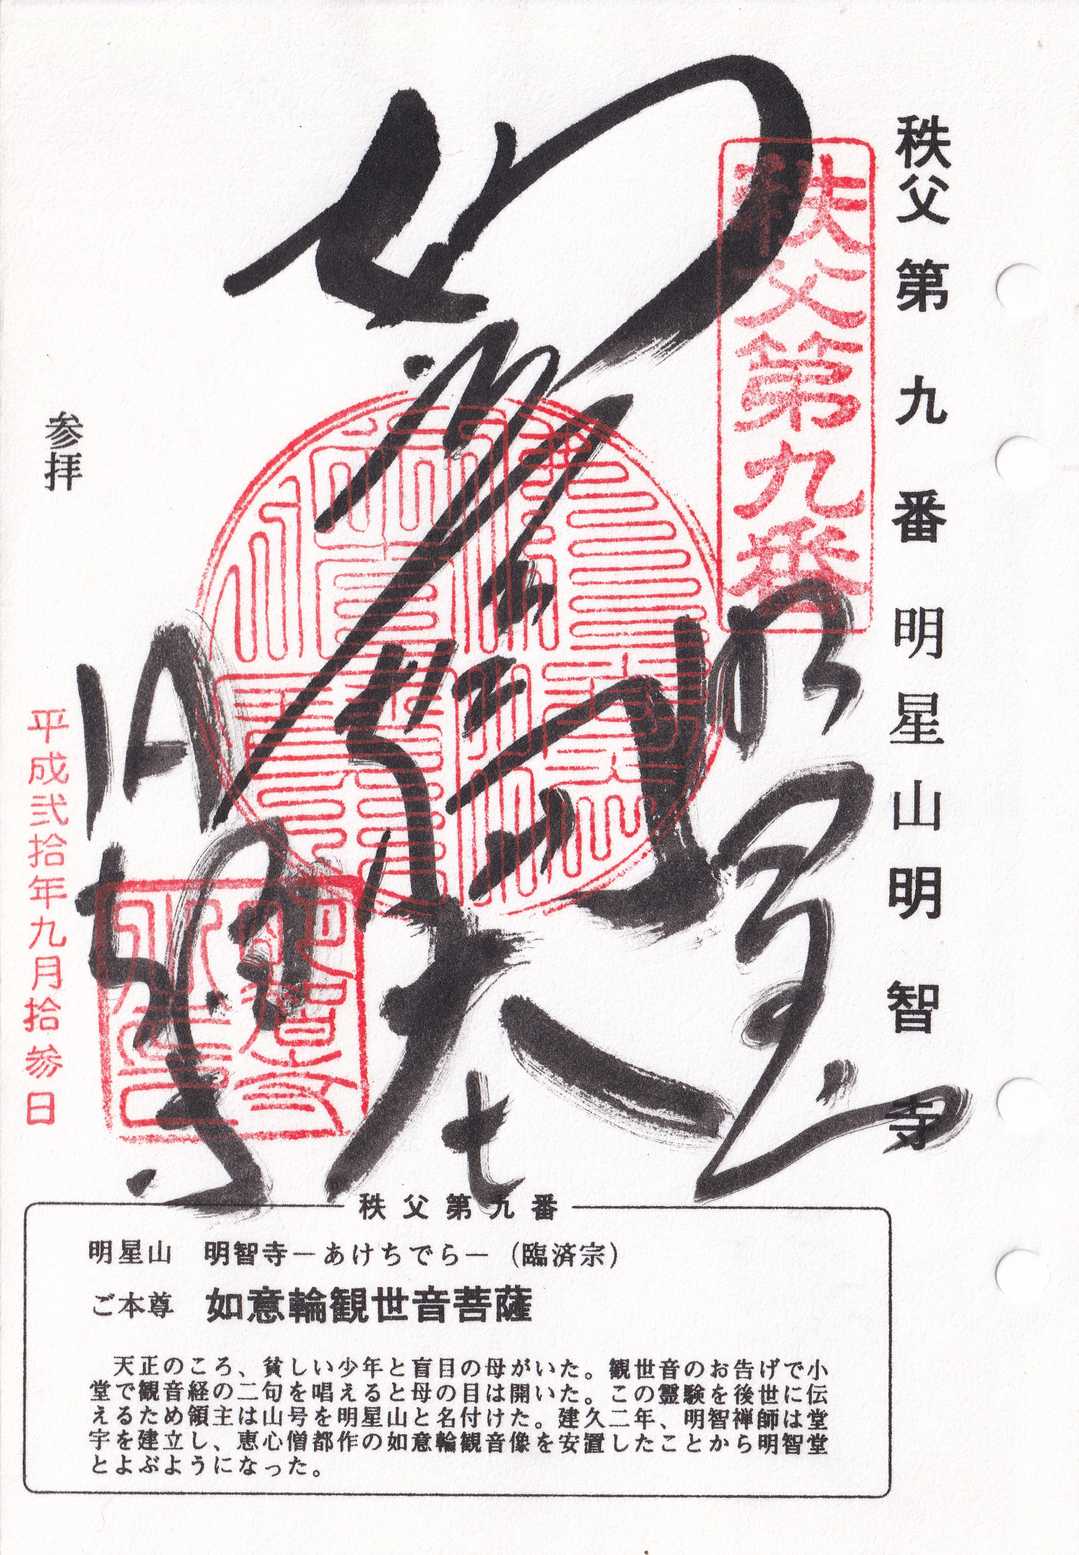 秩父第九番明星山明智寺
秩父第九番
明星山
参拝
平成弐拾年九月拾参日
秩父第九番
明星山 明智寺－あけちでら－（臨済宗）
ご本尊 如意輪観世音菩薩
天正のころ、貧しい少年と盲目の母がいた。観世音のお告げで小
堂で観音経の二句を唱えると母の目は開いた。この霊験を後世に伝
えるため領主は山号を明星山と名付けた。建久二年、明智禅師は堂
宇を建立し、恵心僧都作の如意輪観音像を安置したことから明智堂
とよぶようになった。